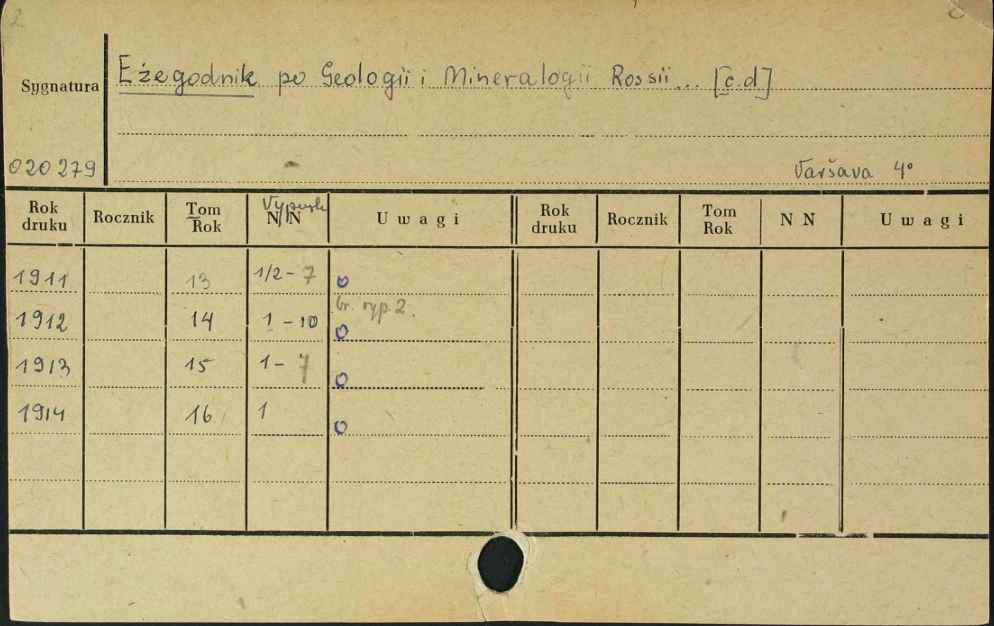 2
Sygnatura
Eżegodnik po Geologii i Mineralogii Rossii... [c.d]
020279
Varšava 4°
Rok druku Rocznik Tom Rok Vypusk NN Uwagi Rok druku Rocznik Tom Rok NN Uwagi
1911 13 1/2 - 7 o
br. wyp. 2.
1912 14 1 - 10 o
1913 15 1 - 7 o
1914 16 1 o